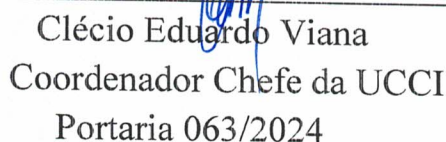 Clécio Eduardo Viana
Coordenador Chefe da UCCI
Portaria 063/2024